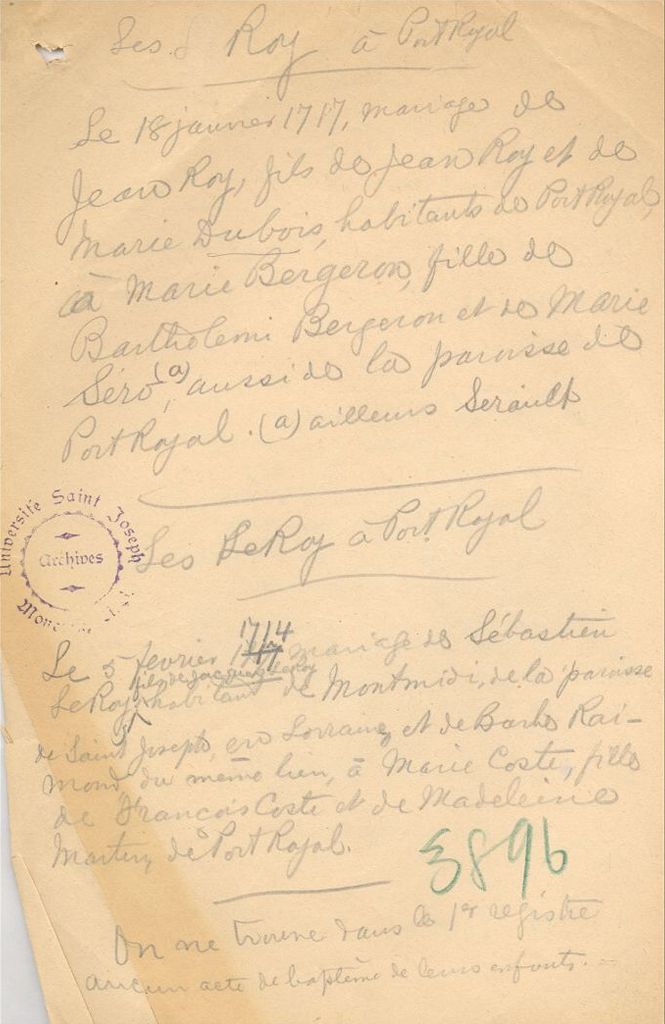 Les Roy à Port Royal
Le 18 janvier 1717, mariage de
Jean Roy, fils de Jean Roy et de
Marie Dubois, habitants de Port Royal,
à Marie Bergeron, fille de
Bartholemi Bergeron et de Marie
Séro (a), aussi de la paroisse de
Port Royal. (a) ailleurs Serault
Université Saint Joseph
Archives
Les LeRoy à Port Royal
Le 5 fevrier 1714 mariage de Sébastien
LeRoy, fils de Jacques Leroy habitant de Montmidi, de la paroisse
de Saint Joseph, en Lorraine, et de Barbe Rai-
mond, du même lieu, à Marie Coste, fille
de François Coste et de Madeleine
Martin, de Port Royal.
3896
On ne trouve dans le 1er registre
aucun acte de baptême de leurs enfants. -